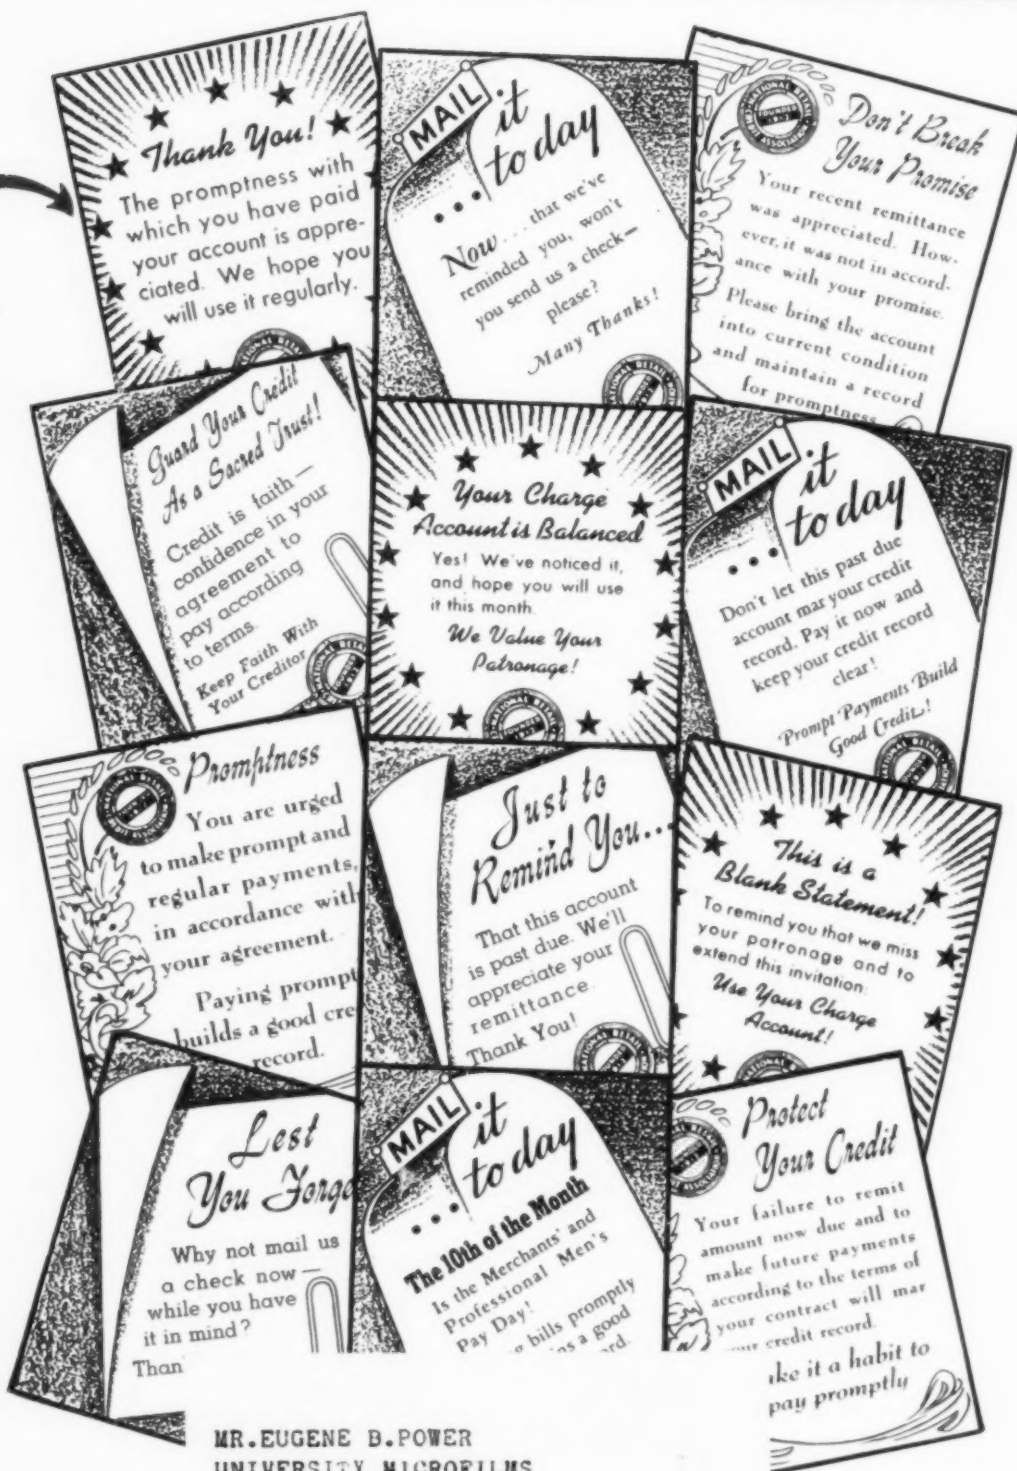 Thank You!
The promptness with
which you have paid
your account is appre-
ciated. We hope you
will use it regularly.
MAIL
it
today
Now... that we've
reminded you, won't
you send us a check—
please?
Many Thanks!
NATIONAL RETAIL
ASSOCIATION
Don't Break
Your Promise
Your recent remittance
was appreciated. How-
ever, it was not in accord-
ance with your promise.
Please bring the account
into current condition
and maintain a record
for promptness
Guard Your Credit
As a Sacred Trust!
Credit is faith—
confidence in your
agreement to
pay according
to terms.
Keep Faith With
Your Creditor
Your Charge
Account is Balanced
Yes! We've noticed it,
and hope you will use
it this month.
We Value Your
Patronage!
MAIL
it
today
Don't let this past due
account mar your credit
record. Pay it now and
keep your credit record
clear!
Prompt Payments Build
Good Credit!
Promptness
You are urged
to make prompt and
regular payments,
in accordance with
your agreement.
Paying prompt
builds a good cre
record.
Just to
Remind You...
That this account
is past due. We'll
appreciate your
remittance.
Thank You!
This is a
Blank Statement!
To remind you that we miss
your patronage and to
extend this invitation:
Use Your Charge
Account!
Lest
You Forge
Why not mail us
a check now—
while you have
it in mind?
Than
MAIL
it
today
The 10th of the Month
Is the Merchants' and
Professional Men's
Pay Day!
bills promptly
a good
Protect
Your Credit
Your failure to remit
amount now due and to
make future payments
according to the terms of
your contract will mar
your credit record.
ke it a habit to
pay promptly
MR.EUGENE B.POWER
UNIVERSITY MICROFILMS